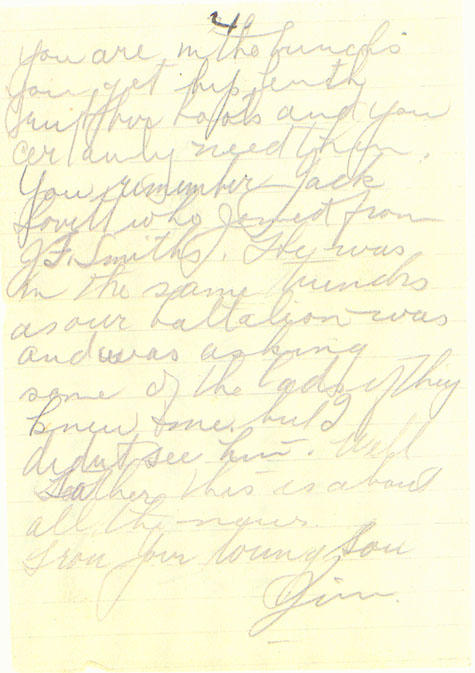 4.
you are in the trenchs
you get hip lenth
rubber boots and you
certainly need them.
You remember Jack
Lovell who Joined from
J.F. Smiths. He was
in the same trenchs
as our battalion was
and was asking
some of the lads if they
knew me but I
didn't see him. Well
Father this is about
all the news.
From your loving Son
Jim.